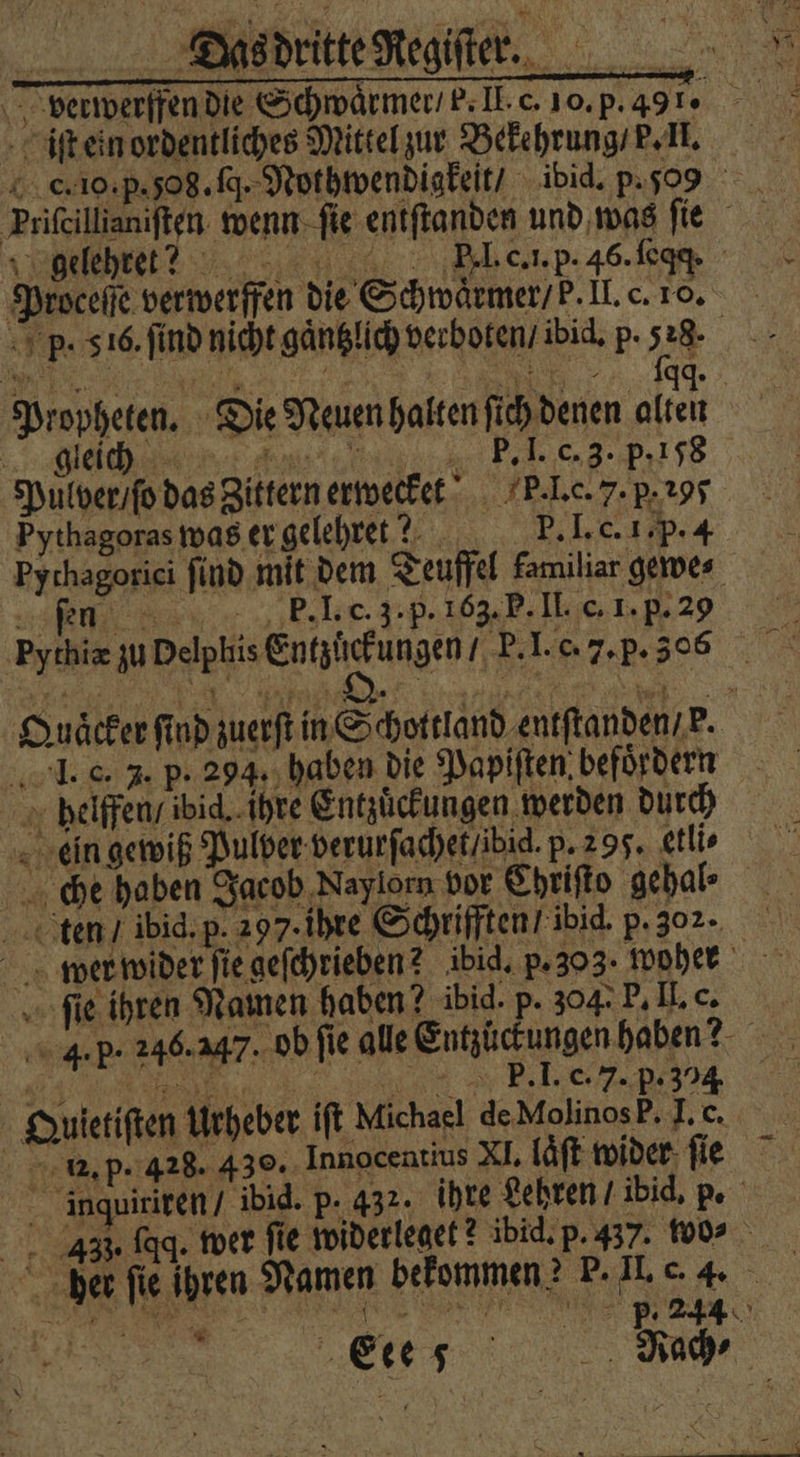 Das dritte Regiſter.
verwerffen die Schwaͤrmer/ P. II. c. 10. p. 491.
iſt ein ordentliches Mittel zur Bekehrung/ P. II.
c. 10. p. 508. ſq. Nothwendigkeit/ ibid. p. 509
Priſcillianiſten wenn ſie entſtanden und was ſie
gelehret? P. I. c. 1. p. 46. ſeqq.
Proceſſe verwerffen die Schwaͤrmer/ P. II. c. 10.
p. 516. ſind nicht gaͤntzlich verboten/ ibid. p. 528.
ſqq.
Propheten. Die Neuen halten ſich denen alten
gleich P. I. c. 3. p. 158
Pulver/ ſo das Zittern erwecket P. I. c. 7. p. 295
Pythagoras was er gelehret? P. I. c. 1. p. 4
Pythagorici ſind mit dem Teuffel familiar gewe⸗
ſen P. I. c. 3. p. 163. P. II. c. 1. p. 29
Pythiæ zu Delphis Entzuͤckungen/ P. I. c. 7. p. 306
Q.
Quaͤcker ſind zuerſt in Schottland entſtanden/ P.
I. c. 7. p. 294. haben die Papiſten befoͤrdern
helffen/ ibid. ihre Entzuͤckungen werden durch
ein gewiß Pulver verurſachet/ ibid. p. 295. etli⸗
che haben Jacob Naylorn vor Chriſto gehal⸗
ten/ ibid. p. 297. ihre Schrifften/ ibid. p. 302.
wer wider ſie geſchrieben? ibid. p. 303. woher
ſie ihren Namen haben? ibid. p. 304. P. II. c.
4. p. 246. 247. ob ſie alle Entzuͤckungen haben?
P. I. c. 7. p. 304
Quietiſten Urheber iſt Michael de Molinos P. I. c.
12. p. 428. 430. Innocentius XI. laͤſt wider ſie
inquiriren/ ibid. p. 432. ihre Lehren/ ibid. p.
433. ſqq. wer ſie widerleget? ibid. p. 437. wo⸗
her ſie ihren Namen bekommen? P. II. c. 4.
p. 244
Eee 5 Nach⸗